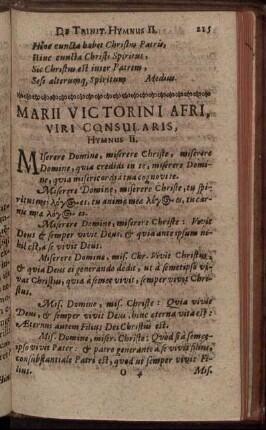 DE TRINIT. HYMNUS II. 215
Hinc cuncta habet Christus Patris,
Hinc cuncta Christi Spiritus,
Sic Christus est inter Patrem,
Sese alterumq, Spiritum Medius.
MARII VICTORINI AFRI,
VIRI CONSULARIS,
HYMNUS II.
Miserere Domine, miserere Christe, miserere
Domine, quia credidi in te, miserere Domi-
ne, quia misericordia tua cognovi te.
Miserere Domine, miserere Christe, tu spi-
ritus mei λόγος es: tu animæ meæ λόγος es, tu car-
nis meæ λόγος es.
Miserere Domine, miserere Christe: Vivit
Deus & semper vivit Deus, & quia ante ipsum ni-
hil est, à se vivit Deus.
Miserere Domine, mis. Chr. Vivit Christus,
& quia Deus ei generando dedit, ut à semetipso vi-
vat Christus, quia à semet vivit, semper vivit Chri-
stus.
Mis. Domine, mis. Christe: Quia vivit
Deus, & semper vivit Deus, hinc æterna vita est:
Æternus autem Filius Dei Christus est.
Mis. Domine, miser. Christe: Quod si à semet-
ipso vivit Pater: & patre generante à se vivit filius,
consubstantiale Patri est, quod ut semper vivit Fi-
lius.
O 4 Mis.